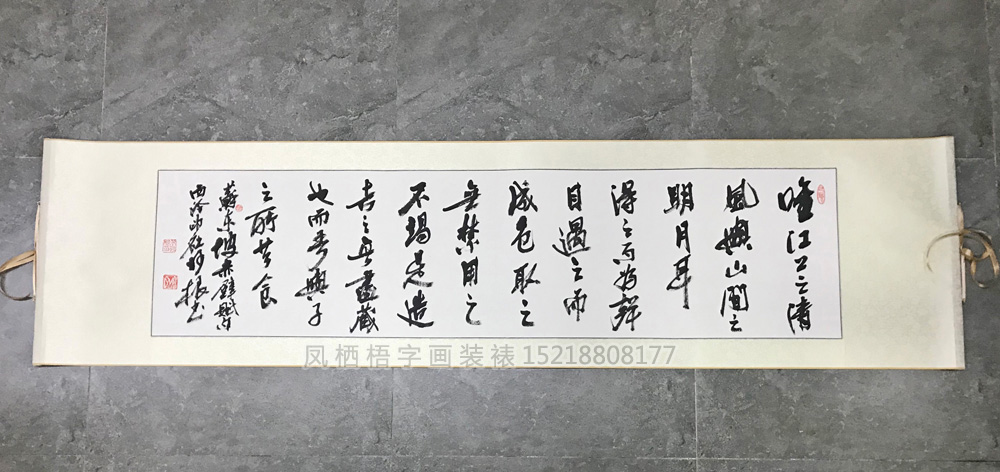 唯江上之清
風與山間之
明月耳
得之而为聲
目遇之而
成色取之
無禁用之
不竭是造
者之無盡藏
也而吾與子
之所共食
蘇東坡赤壁賦句
振書
凤栖梧字画装裱 15218808177